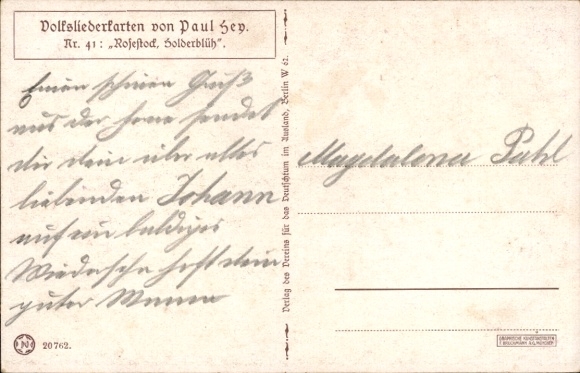 Volksliederkarten von Paul Hey.
Nr. 41: „Rosestock, Holderblüh“.
Einen schönen Gruß
aus der ferne sendet
dir dein über alles
liebenden Johann
auf ein baldiges
Wiedersehn hoft dein
guter
Magdalena Pahl
Verlag des Vereins für das Deutschtum im Ausland, Berlin W 62.
20762.
GRAPHISCHE KUNSTANSTALTEN
F. BRUCKMANN A.G. MÜNCHEN